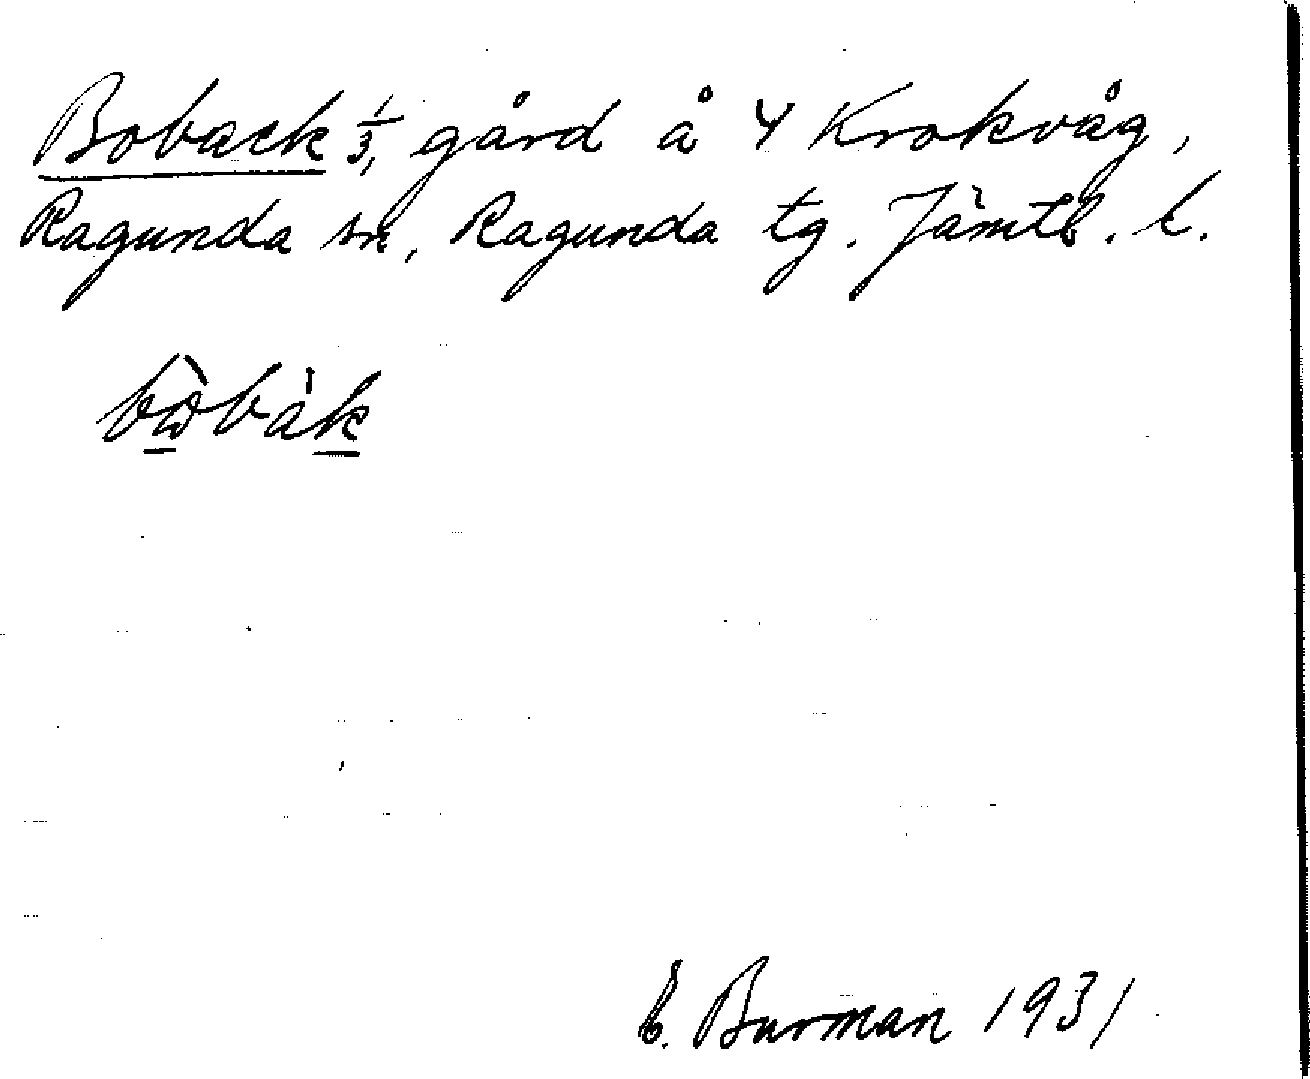 Boback 1/3, gård å 4 Krokvåg,
Ragunda sn, Ragunda tg. Jämtl. l.
bὼbàk
E. Burman 1931